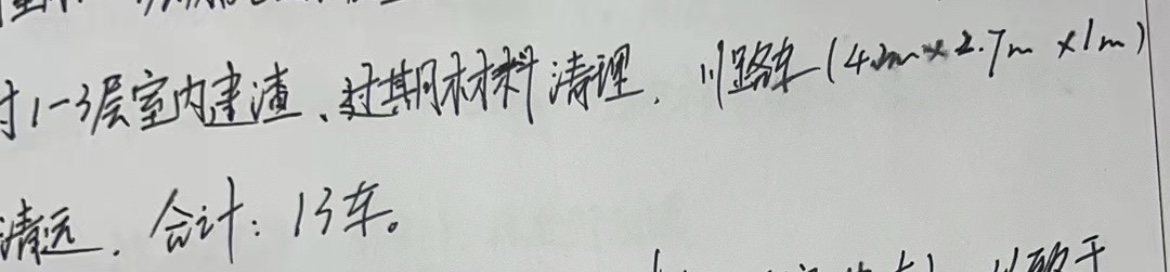 对1-3层室内建渣、过期材料清理，川路车(4.2m×2.7m×1m)
清运，合计：13车。